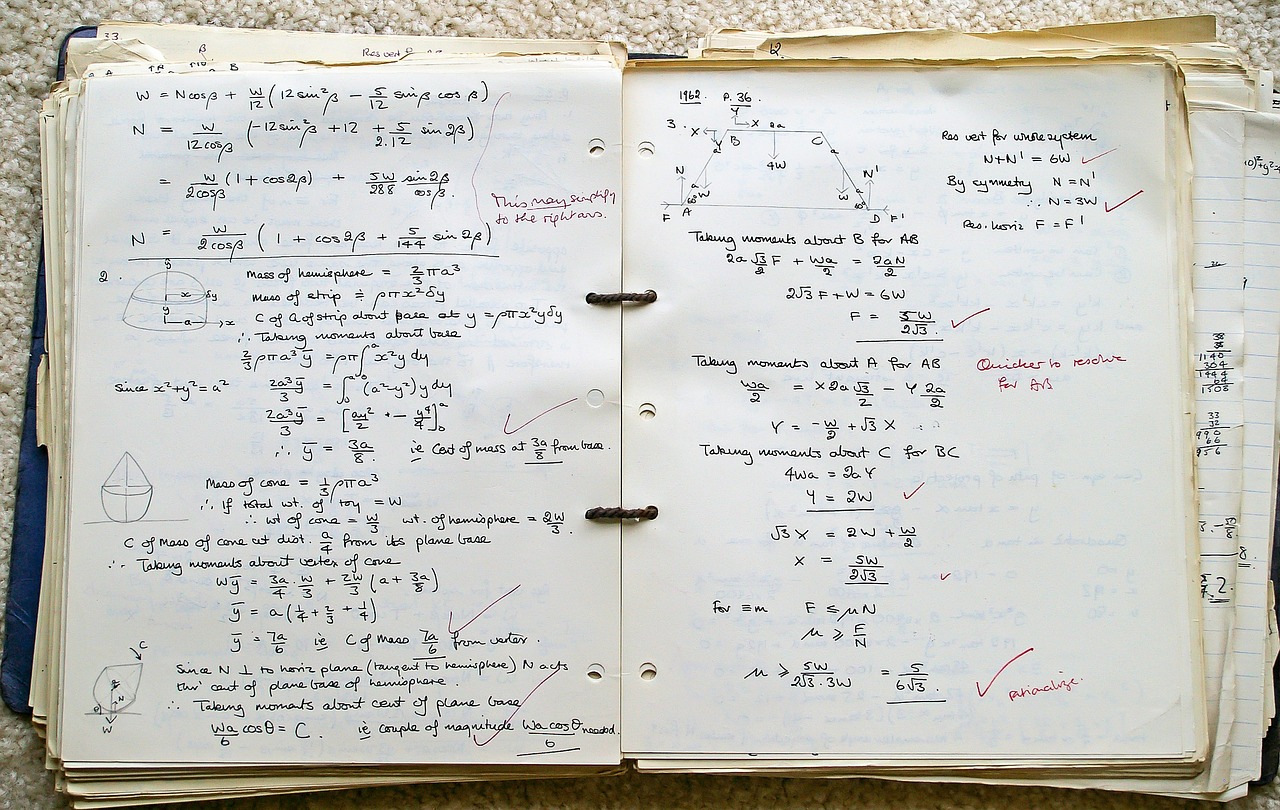 33.
β
Res vert
W = Ncosβ + W/12 (12sin²β − 5/12 sinβ cosβ)
N = W/12cosβ (−12sin²β + 12 + 5/2.12 sin2β)
= W/2cosβ (1 + cos2β) + 5W/288 sin2β/cosβ.
This may simplify
to the right ans.
N = W/2cosβ (1 + cos2β + 5/144 sin2β)
2.
Mass of hemisphere = 2/3 πa³
Mass of strip ≑ ρπx²δy
C of G of strip about base at y = ρπx²yδy
∴ Taking moments about base
2/3 ρπa³ȳ = ρπ∫₀ᵃ x²y dy
Since x²+y²=a² 2a³ȳ/3 = ∫₀ᵃ (a²−y²)y dy
2a³ȳ/3 = [ay²/2 − y⁴/4]₀ᵃ
∴ ȳ = 3a/8. ie Cent of mass at 3a/8 from base.
Mass of cone = 1/3 ρπa³
∴ If total wt. of toy = W
∴ wt of cone = W/3 wt. of hemisphere = 2W/3.
C of Mass of cone at dist. a/4 from its plane base
∴ Taking moments about vertex of cone
Wȳ = 3a/4 . W/3 + 2W/3 (a + 3a/8)
ȳ = a(1/4 + 2/3 + 1/4)
ȳ = 7a/6 ie C of Mass 7a/6 from vertex.
C
Since N ⊥ to horiz plane (tangent to hemisphere) N acts
thro' cent of plane base of hemisphere.
∴ Taking moments about cent of plane base
Wa/6 cosθ = C. ie couple of magnitude Wa cosθ/6 needed.
N
W
12.
1962. P. 36.
3.
Y
X X 2a
B C
Y
a a
4W
N N'
a a
W W
60° 60°
F A D F'
Res vert for whole system
N+N' = 6W
By symmetry N = N'
∴ N = 3W
Res. horiz F = F'
Taking moments about B for AB
2a √3/2 F + Wa/2 = 2aN/2
2√3 F + W = 6W
F = 5W/2√3.
Taking moments about A for AB
Quicker to resolve
for AB
Wa/2 = X 2a √3/2 − Y 2a/2
Y = −W/2 + √3 X
Taking moments about C for BC
4Wa = 2aY
Y = 2W
√3 X = 2W + W/2
X = 5W/2√3
For ≡m F ≤ μN
μ ≥ F/N
μ ≥ 5W/2√3.3W = 5/6√3.
rationalize.
38
38
1140
304
1444
64
1508
33
32
990
66
956